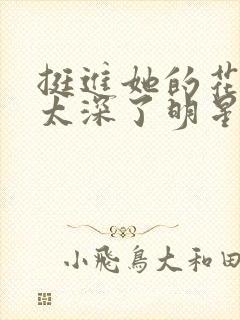 挺进她的花
太深了明星
小飛鳥大和田